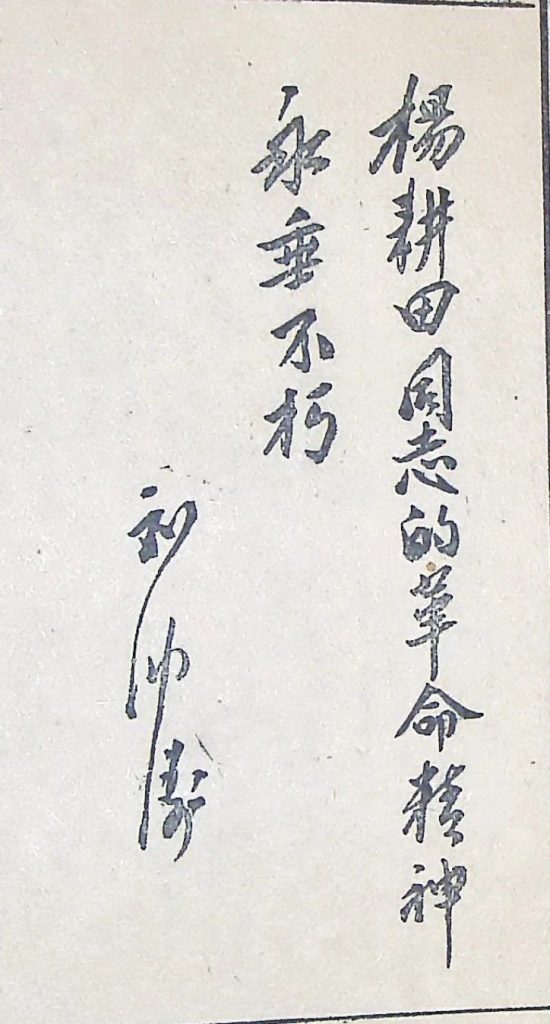 楊耕田同志的革命精神
永垂不朽
刘澜涛